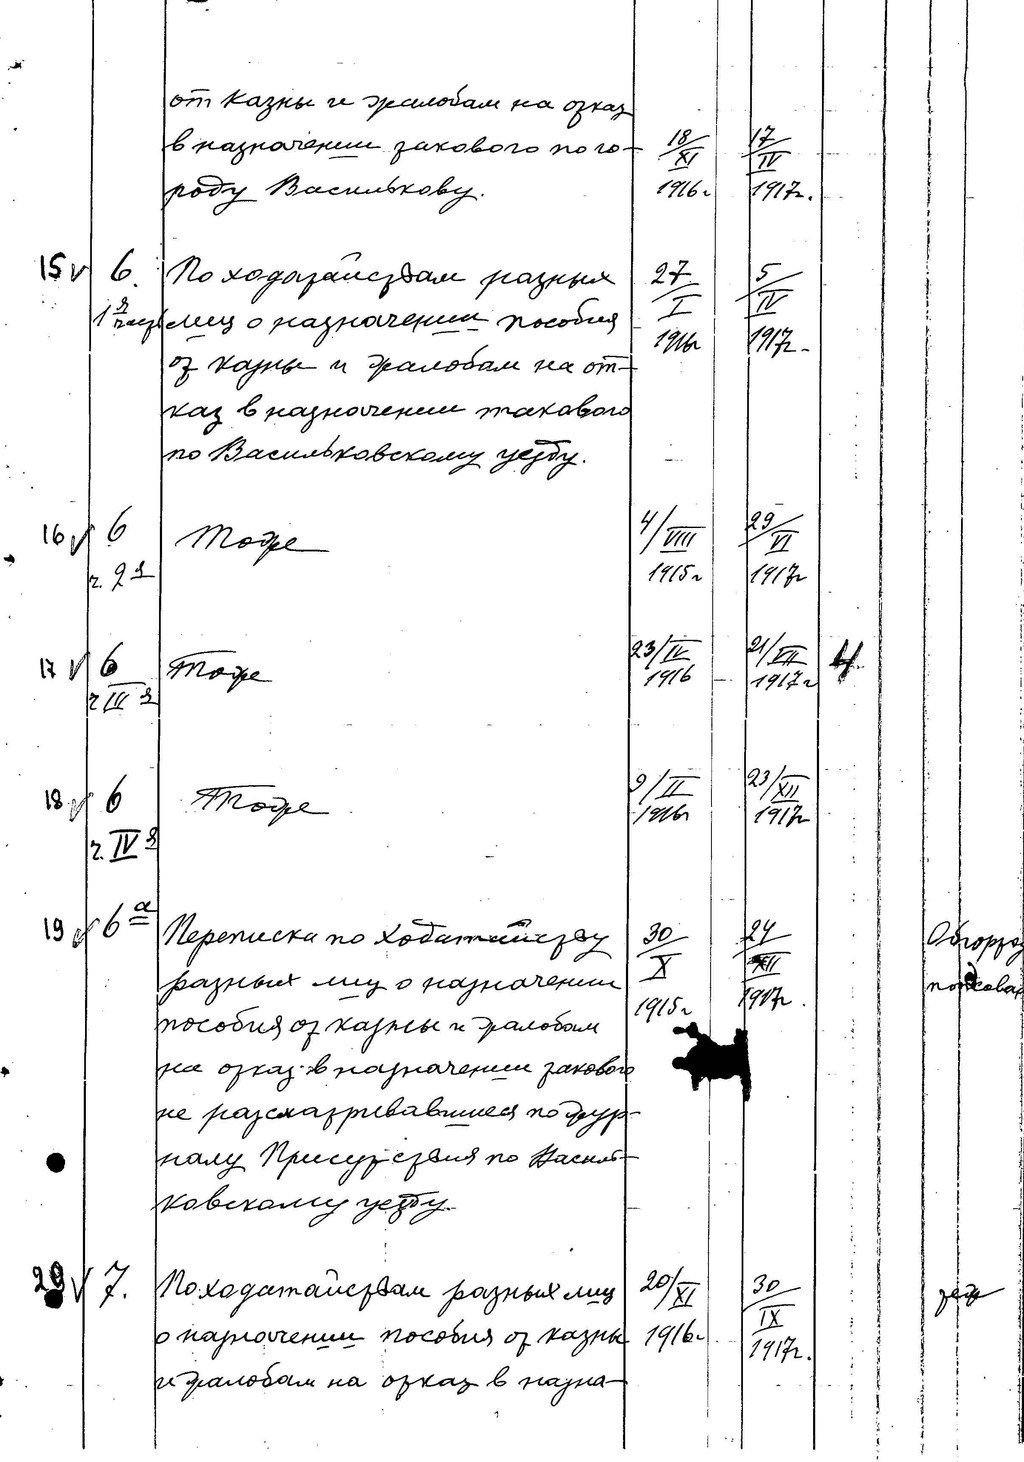 от казны и жалобам на отказ
в назначении такового по го-
роду Василькову.
18/XI 1916 г
17/IV 1917 г.
15 v 6. По ходатайствам разных
1я част лиц о назначении пособия
от казны и жалобам на от-
каз в назначении такового
по Васильковскому уезду.
27/I 1916 г
5/IV 1917 г.
16 v 6 Тоже
ч. 2я
4/VIII 1915 г
29/VI 1917 г
17 v 6 Тоже
ч III я
23/IV 1916
21/VII 1917 г
18 v 6 Тоже
ч. IV я
9/II 1916 г
23/XII 1917 г
19 v 6а Переписка по ходатайству
разных лиц о назначении
пособия от казны и жалобам
на отказ в назначении такового
не разсматревавшиеся по жур-
налу Присутствия по Василь-
ковскому уезду.
30/X 1915 г
24/XII 1917 г.
20 v 7. По ходатайствам разных лиц
о назначении пособия от казны
и жалобам на отказ в назна-
20/XI 1916 г
30/IX 1917 г.